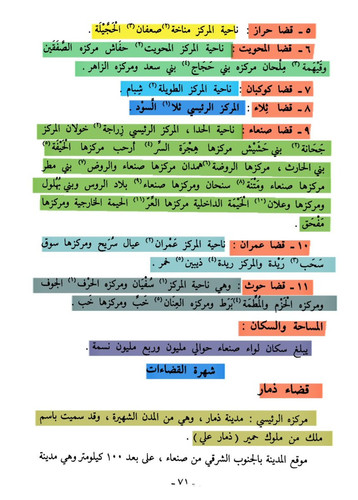 ٥ - قضا حراز : ناحية المركز مناخة(١) صعفان(٢) الحُجَيْلة .
٦ - قضا المحويت : ناحية المركز المحويت(١) حفاش مركزه الصَّفَقَين
وقَيْهَمة(٢) مِلْحان مركزه بني حَجَاج(٤) بني سعد ومركزه الزاهر .
٧ - قضا كوكبان : ناحية المركز الطويلة(١) شِبام .
٨ - قضا ثِلاء : المركز الرئيسي ثلا(١) السُّوْد .
٩ - قضا صنعاء : ناحية الحدا ، المركز الرئيسي زِراجة(٢) خولان المركز
جَحَانة(٣) بني حُشَيْش مركزها هِجْرَة السرّ(٤) أرحب مركزها الخَيْفة(٥)
بني الحارث ، مركزها الروضة(٦) همدان مركزها صنعاء والروض(٧) بني مطر
مركزها صنعاء ومَتْنَة(٨) سنحان ومركزها صنعاء(٩) بلاد الروس وبني بُهلول
ومركزها وعلان(١٠) الحَيْمَة الداخلية مركزها العُرّ(١١) الحيمة الخارجية ومركزها
مَفْحَق .
١٠ - قضا عمران : ناحية المركز عَمْران(٢) عيال سُرَيح ومركزها سوق
سَحَب(٣) رَيْدة والمركز ريدة(٤) ذيبين(٥) خمر .
١١ - قضاء حوث : وهي ناحية المركز(١) سُفْيَان ومركزه الحَرْف(٢) الجوف
ومركزه الحَزْم والمطَّمة(٤) بَرَط ومركزه العِنَان(٥) خَبّ ومركزها خَب .
المساحة والسكان :
يبلغ سكان لواء صنعاء حوالي مليون وربع مليون نسمة .
شهرة القضاءات
قضاء ذمار
مركزه الرئيسي : مدينة ذمار ، وهي من المدن الشهيرة ، وقد سميت باسم
ملك من ملوك حمير ( ذمار علي ) .
موقع المدينة بالجنوب الشرقي من صنعاء ، على بعد ١٠٠ كيلومتر وهي مدينة
- ٧١ -